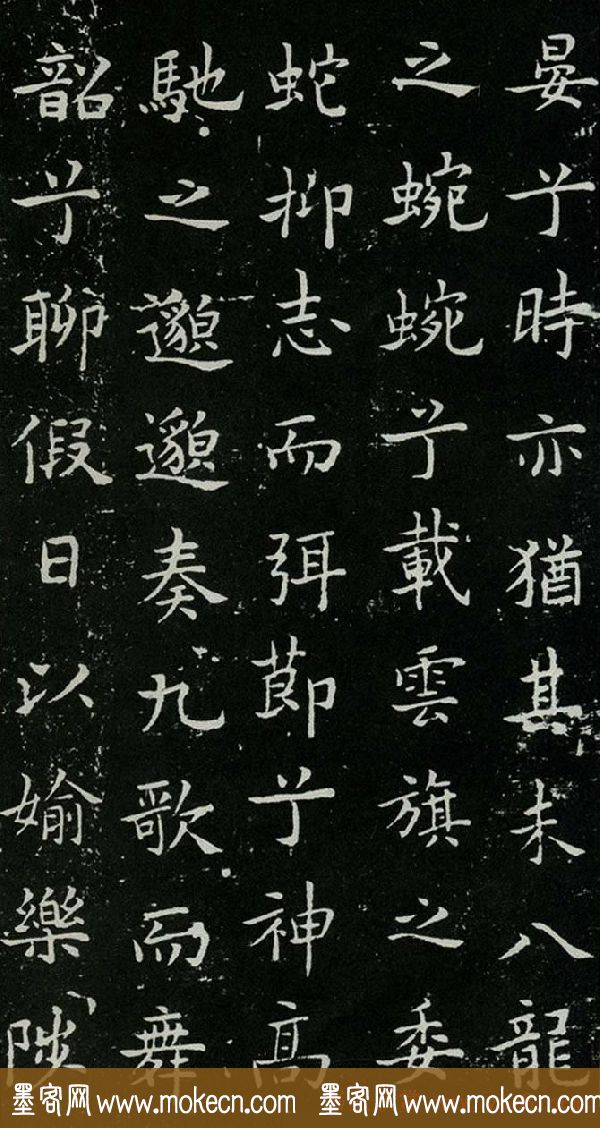 晏兮時亦猶其未八龍
之蜿蜿兮載雲旗之委
蛇抑志而弭節兮神高
馳之邈邈奏九歌而舞
韶兮聊假日以媮樂陟
墨客网 www.mokecn.com 墨客网 www.mokecn.com